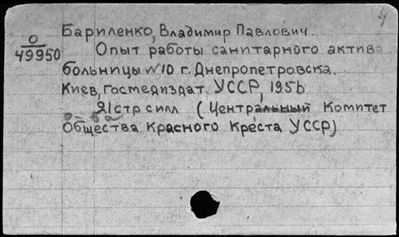 Бариленко, Владимир Павлович.
О
49950
Опыт работы санитарного актива
больницы №10 г. Днепропетровска.
Киев, Госмедиздат УССР, 1956
стр (Центральный Комитет
Общества Красного Креста УССР)